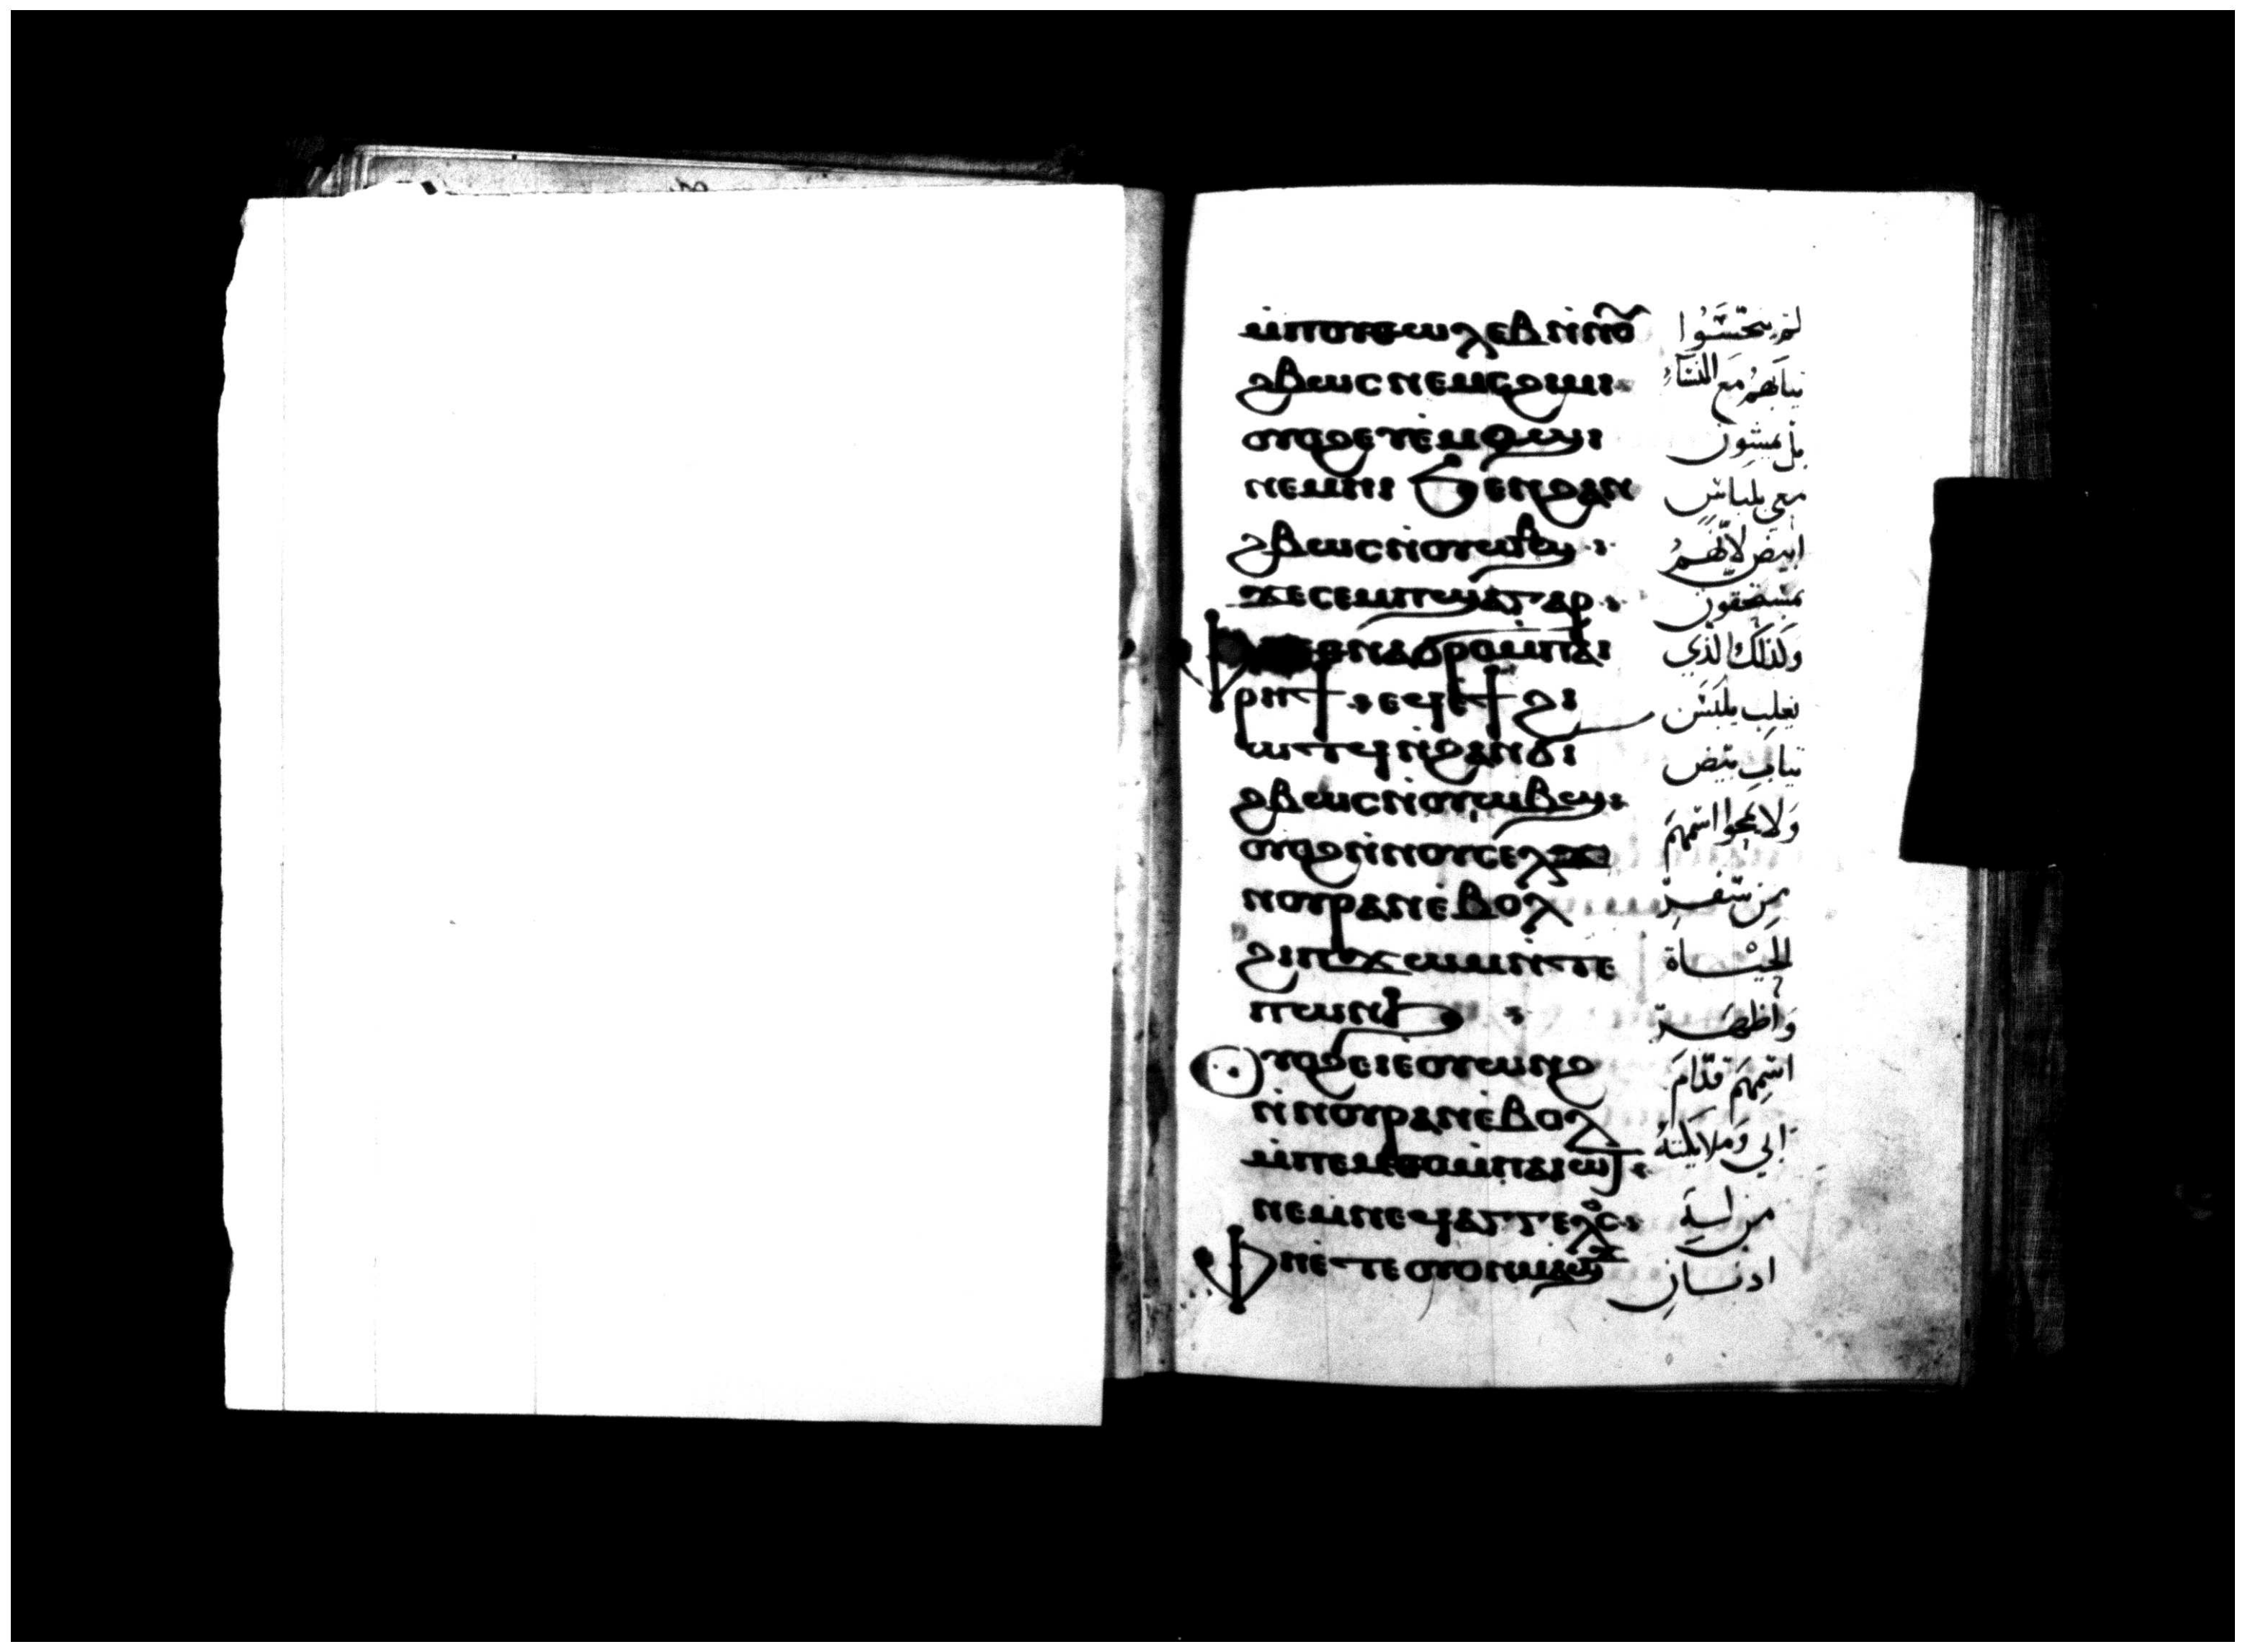 ⲙ̀ⲡⲟⲩⲑⲱⲗⲉⲃ ⲛ̀ⲛⲟⲩ
ϩⲃⲱⲥ ⲛⲉⲙ ⲥϩⲓⲙⲓ:
ⲟⲩⲟϩ ⲉⲩⲉ̀ⲙⲟϣⲓ:
ⲛⲉⲙⲏⲓ: ϧⲉⲛ ϩⲁⲛ
ϩⲃⲱⲥ ⲛ̀ⲟⲩⲱⲃϣ:
ϫⲉ ⲥⲉⲙⲡϣⲁ ⲅⲁⲣ:
ⲉⲑⲛⲁϭⲣⲟ ⲙ̀ⲡⲁⲓ
ⲣⲏϯ: ⲉϥⲉ̀ϯ ϩⲓ
ⲱⲧϥ ⲛ̀ϩⲁⲛ
ϩⲃⲱⲥ ⲛ̀ⲟⲩⲱⲃϣ:
ⲟⲩⲟϩ ⲛ̀ⲛⲟⲩⲥⲉⲗϫ
ⲛⲟⲩⲣⲁⲛ ⲉ̀ⲃⲟⲗ
ϩⲓ ⲡϫⲱⲙ ⲛ̀ⲧⲉ
ⲡⲱⲛϧ:
ⲟⲩⲟϩ ⲉⲓⲉ̀ⲟⲩⲱⲛϩ
ⲛ̀ⲛⲟⲩⲣⲁⲛ ⲉ̀ⲃⲟⲗ
ⲙ̀ⲡⲉⲙⲑⲟ ⲙ̀ⲡⲁⲓⲱⲧ:
ⲛⲉⲙ ⲛⲉϥⲁⲅⲅⲉⲗⲟⲥ:
ⲫⲏ ⲉ̀ⲧⲉ ⲟⲩⲟⲛ ⲙⲁϣϫ
لم ينجسوا
ثيابهم مع النساء
بل يمشون
معي بلباس
ابيض لانهم
مستحقون
وكذلك الذي
يغلب يلبس
ثياب بيض
ولا يمحوا اسمهم
من سفر
الحياة
واظهر
اسمهم قدام
ابي وملايكته
من له
اذنان